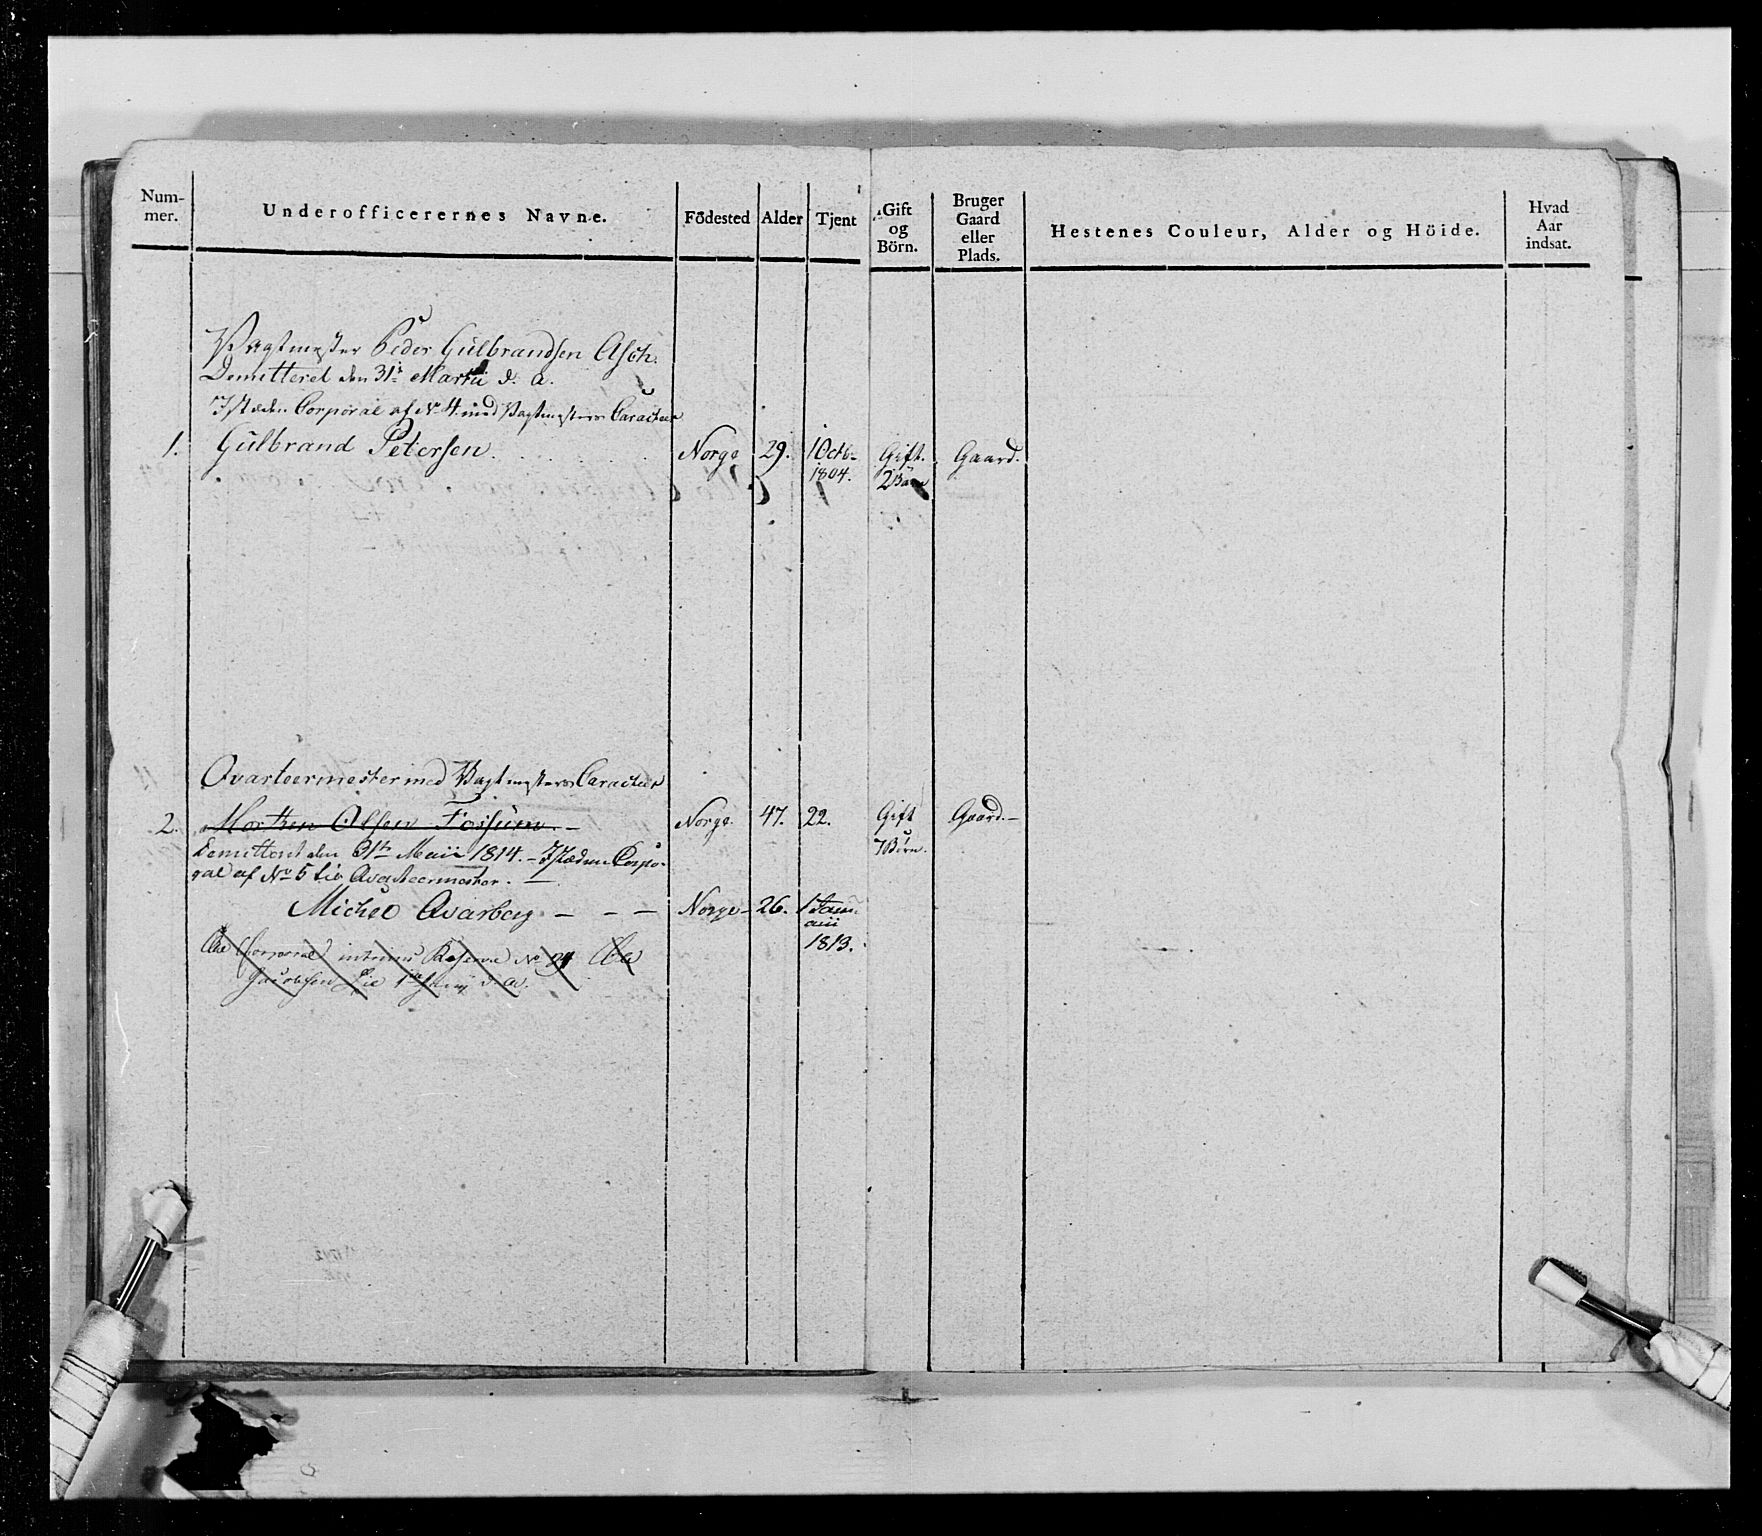 Num-
mer.
Underofficerernes Navne.
Födested
Alder
Tjent
Gift
og
Börn.
Bruger
Gaard
eller
Plads.
Hestenes Couleur, Alder og Höide.
Hvad
Aar
indsat.
Vagtmester Peder Gulbrandsen Asch.
Demitteret den 31te Martii d. a.
Istæden Corporal af No 4 med Vagtmesters Caracteer
1. Gulbrand Petersen. Norge 29. 1 Octb. Gift. Gaard.
1804. 2 Börn
Qvarteermester med Vagtmesters Caracteer
2. Morthen Olsen Fossum. – Norge. 47. 22. Gift Gaard. –
7 Börn.
Demitteret den 31te Maii 1814. – Istæden Corpo-
ral af No 5 Qvarteermester. –
Michel Qvarberg – – – Norge – 26. 1 Janu-
arii
1813.
Corporal Reserve No 24
Jacobsen 1te Junij d. a.